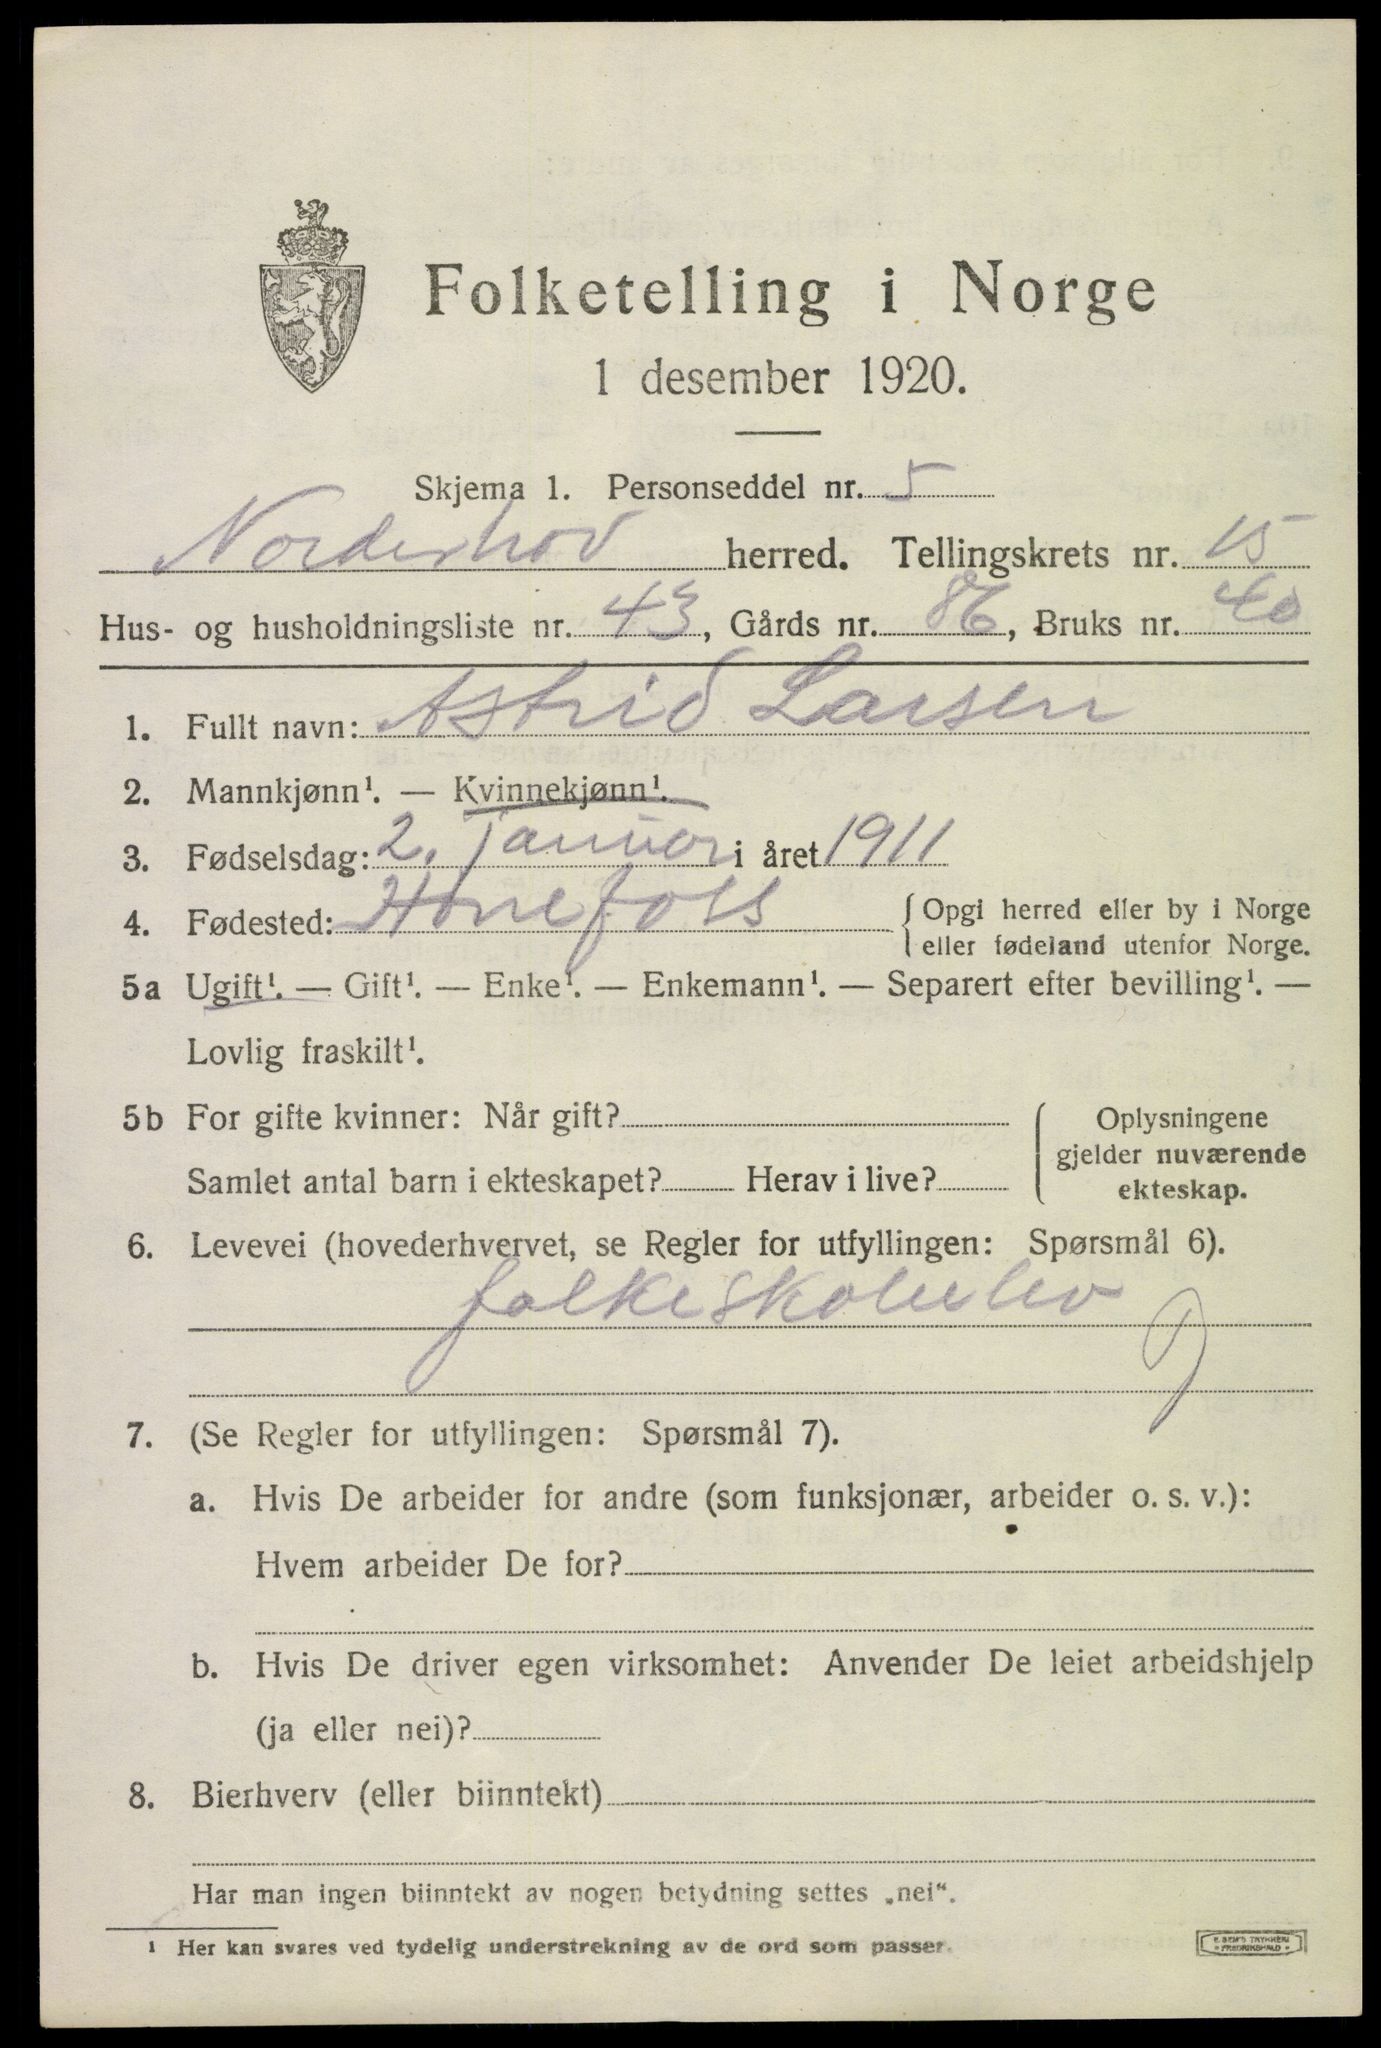 Folketelling i Norge
1 desember 1920.
Skjema 1. Personseddel nr. 5
Norderhov herred. Tellingskrets nr. 15
Hus- og husholdningsliste nr. 43, Gårds nr. 86, Bruks nr. 40
1. Fullt navn: Astrid Larsen
2. Mannkjønn¹. — Kvinnekjønn¹.
3. Fødselsdag: 2. januar i året 1911
4. Fødested: Hönefoss { Opgi herred eller by i Norge
eller fødeland utenfor Norge.
5a Ugift¹. — Gift¹. — Enke¹. — Enkemann¹. — Separert efter bevilling¹. —
Lovlig fraskilt¹.
5b For gifte kvinner: Når gift?
Samlet antal barn i ekteskapet? Herav i live?
Oplysningene
gjelder nuværende
ekteskap.
6. Levevei (hovederhvervet, se Regler for utfyllingen: Spørsmål 6).
folkeskoleelev
7. (Se Regler for utfyllingen: Spørsmål 7).
a. Hvis De arbeider for andre (som funksjonær, arbeider o. s. v.):
Hvem arbeider De for?
b. Hvis De driver egen virksomhet: Anvender De leiet arbeidshjelp
(ja eller nei)?
8. Bierhverv (eller biinntekt)
Har man ingen biinntekt av nogen betydning settes „nei“.
¹ Her kan svares ved tydelig understrekning av de ord som passer.
E. SEM'S TRYKKERI
FREDRIKSHALD